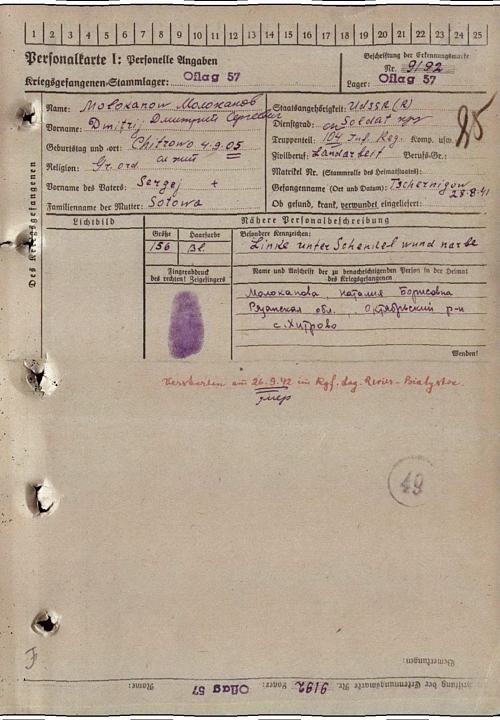 1 2 3 4 5 6 7 8 9 10 11 12 13 14 15 16 17 18 19 20 21 22 23 24 25
Personalkarte I: Personelle Angaben
Kriegsgefangenen-Stammlager: Oflag 57
Beschriftung der Erkennungsmarke
Nr. 9192
Lager: Oflag 57
Des Kriegsgefangenen
Name: Molokanow Молоканов
Vorname: Dmitrij Дмитрий Сергеевич
Geburtstag und -ort: Chitrowo 4.9.05
Religion: Gr. ord.
Vorname des Vaters: Sergej +
Familienname der Mutter: Sotowa
Staatsangehörigkeit: UdSSR (R)
Dienstgrad: Soldat кр
Truppenteil: 104 Inf. Reg. Komp. usw.
Zivilberuf: Landarbeit Berufs-Gr.:
Matrikel Nr. (Stammrolle des Heimatstaates):
Gefangennahme (Ort und Datum): Tschernigow
28.8.41
Ob gesund, krank, verwundet eingeliefert:
25
Lichtbild
Nähere Personalbeschreibung
Größe Haarfarbe
156 Bl.
Besondere Kennzeichen:
Linke unter Schenkel wund narbe
Fingerabdruck
des rechten! Zeigefingers
Name und Anschrift der zu benachrichtigenden Person in der Heimat
des Kriegsgefangenen
Молоканова, Наталия Борисовна
Рязанская обл. Октябрьский р-н
с. Хитрово
Wenden!
Verstorben am 26.9.42 im Kgf. Laz. Revier-Bialystok
умер
49
Bemerkungen:
Beschriftung der Erkennungsmarke Nr. 9192 Lager: Oflag 57 Name: